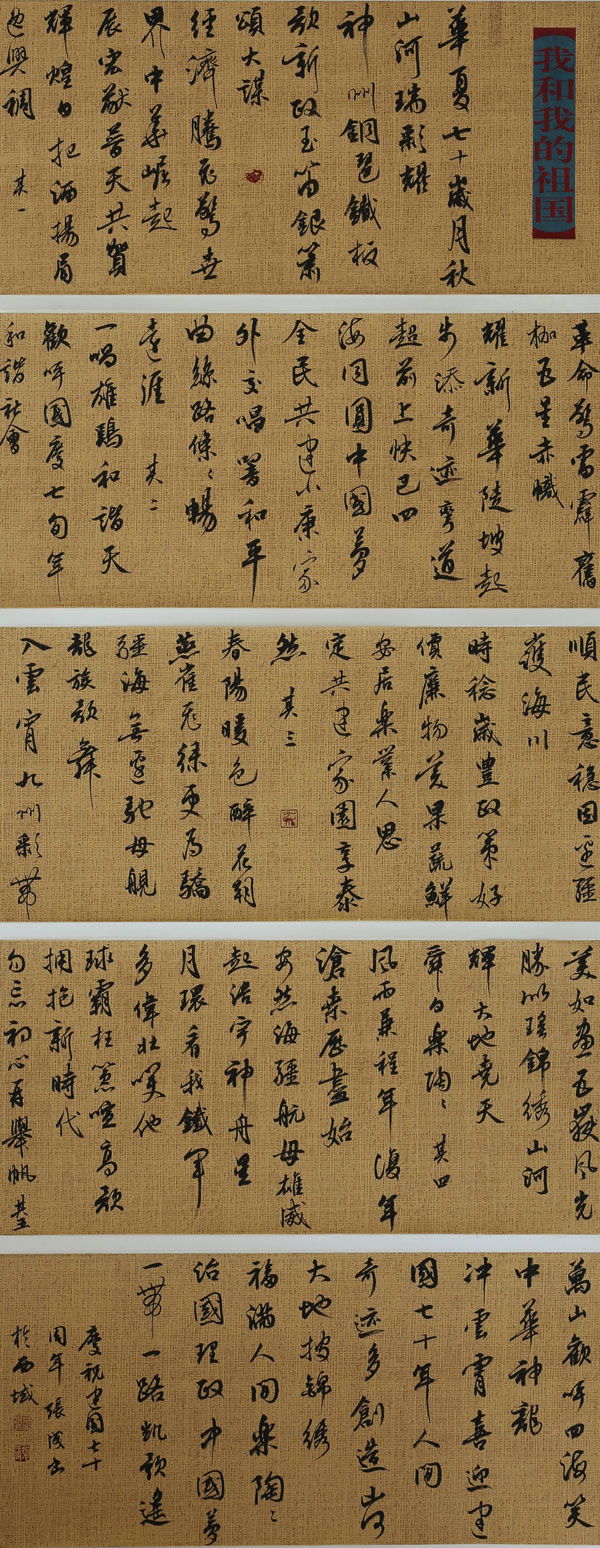 【我和我的祖国】
華夏七十歲月秋
山河瑞彩耀
神州銅琶鐵板
歌新政玉笛銀簫
頌大謀
經濟騰飛驚世
界中華崛起
展宏猷普天共賀
輝煌日把酒揚眉
逸興稠 其一
革命驚雷霹舊
枷五星赤幟
耀新華陡坡起
步添奇迹彎道
超前上快巴四
海同圓中國夢
全民共建小康家
外交唱響和平
曲絲路條〻暢
達涯 其二
一唱雄鷄和諧天
歡呼國慶七旬年
和諧社會
順民意穩固邊疆
護海川
時稔歲豐政策好
價廉物美果蔬鮮
安居樂業人思
定共建家園享泰
然 其三
春陽暖色醉花朝
燕雀飛綠更為驕
疆海無邊馳母艦
龍族歌舞
入雲宵九州彩帶
美如畫五嶽風光
勝似瑤錦綉山河
輝大地堯天
舜日樂陶〻 其四
風雨兼程年復年
滄桑歷盡始
安然海疆航母雄威
起浩宇神舟星
月環看我鐵軍
多偉壯嘆他
球霸枉喧高歌
擁抱新時代
勿忘初心再舉帆 其五
萬山歡呼四海笑
中華神龍
沖雲霄喜迎建
國七十年人間
奇迹多創造山河
大地披錦綉
福滿人間樂陶〻
治國理政中國夢
一帶一路凱歌進
慶祝建國七十
周年張成出
於西域